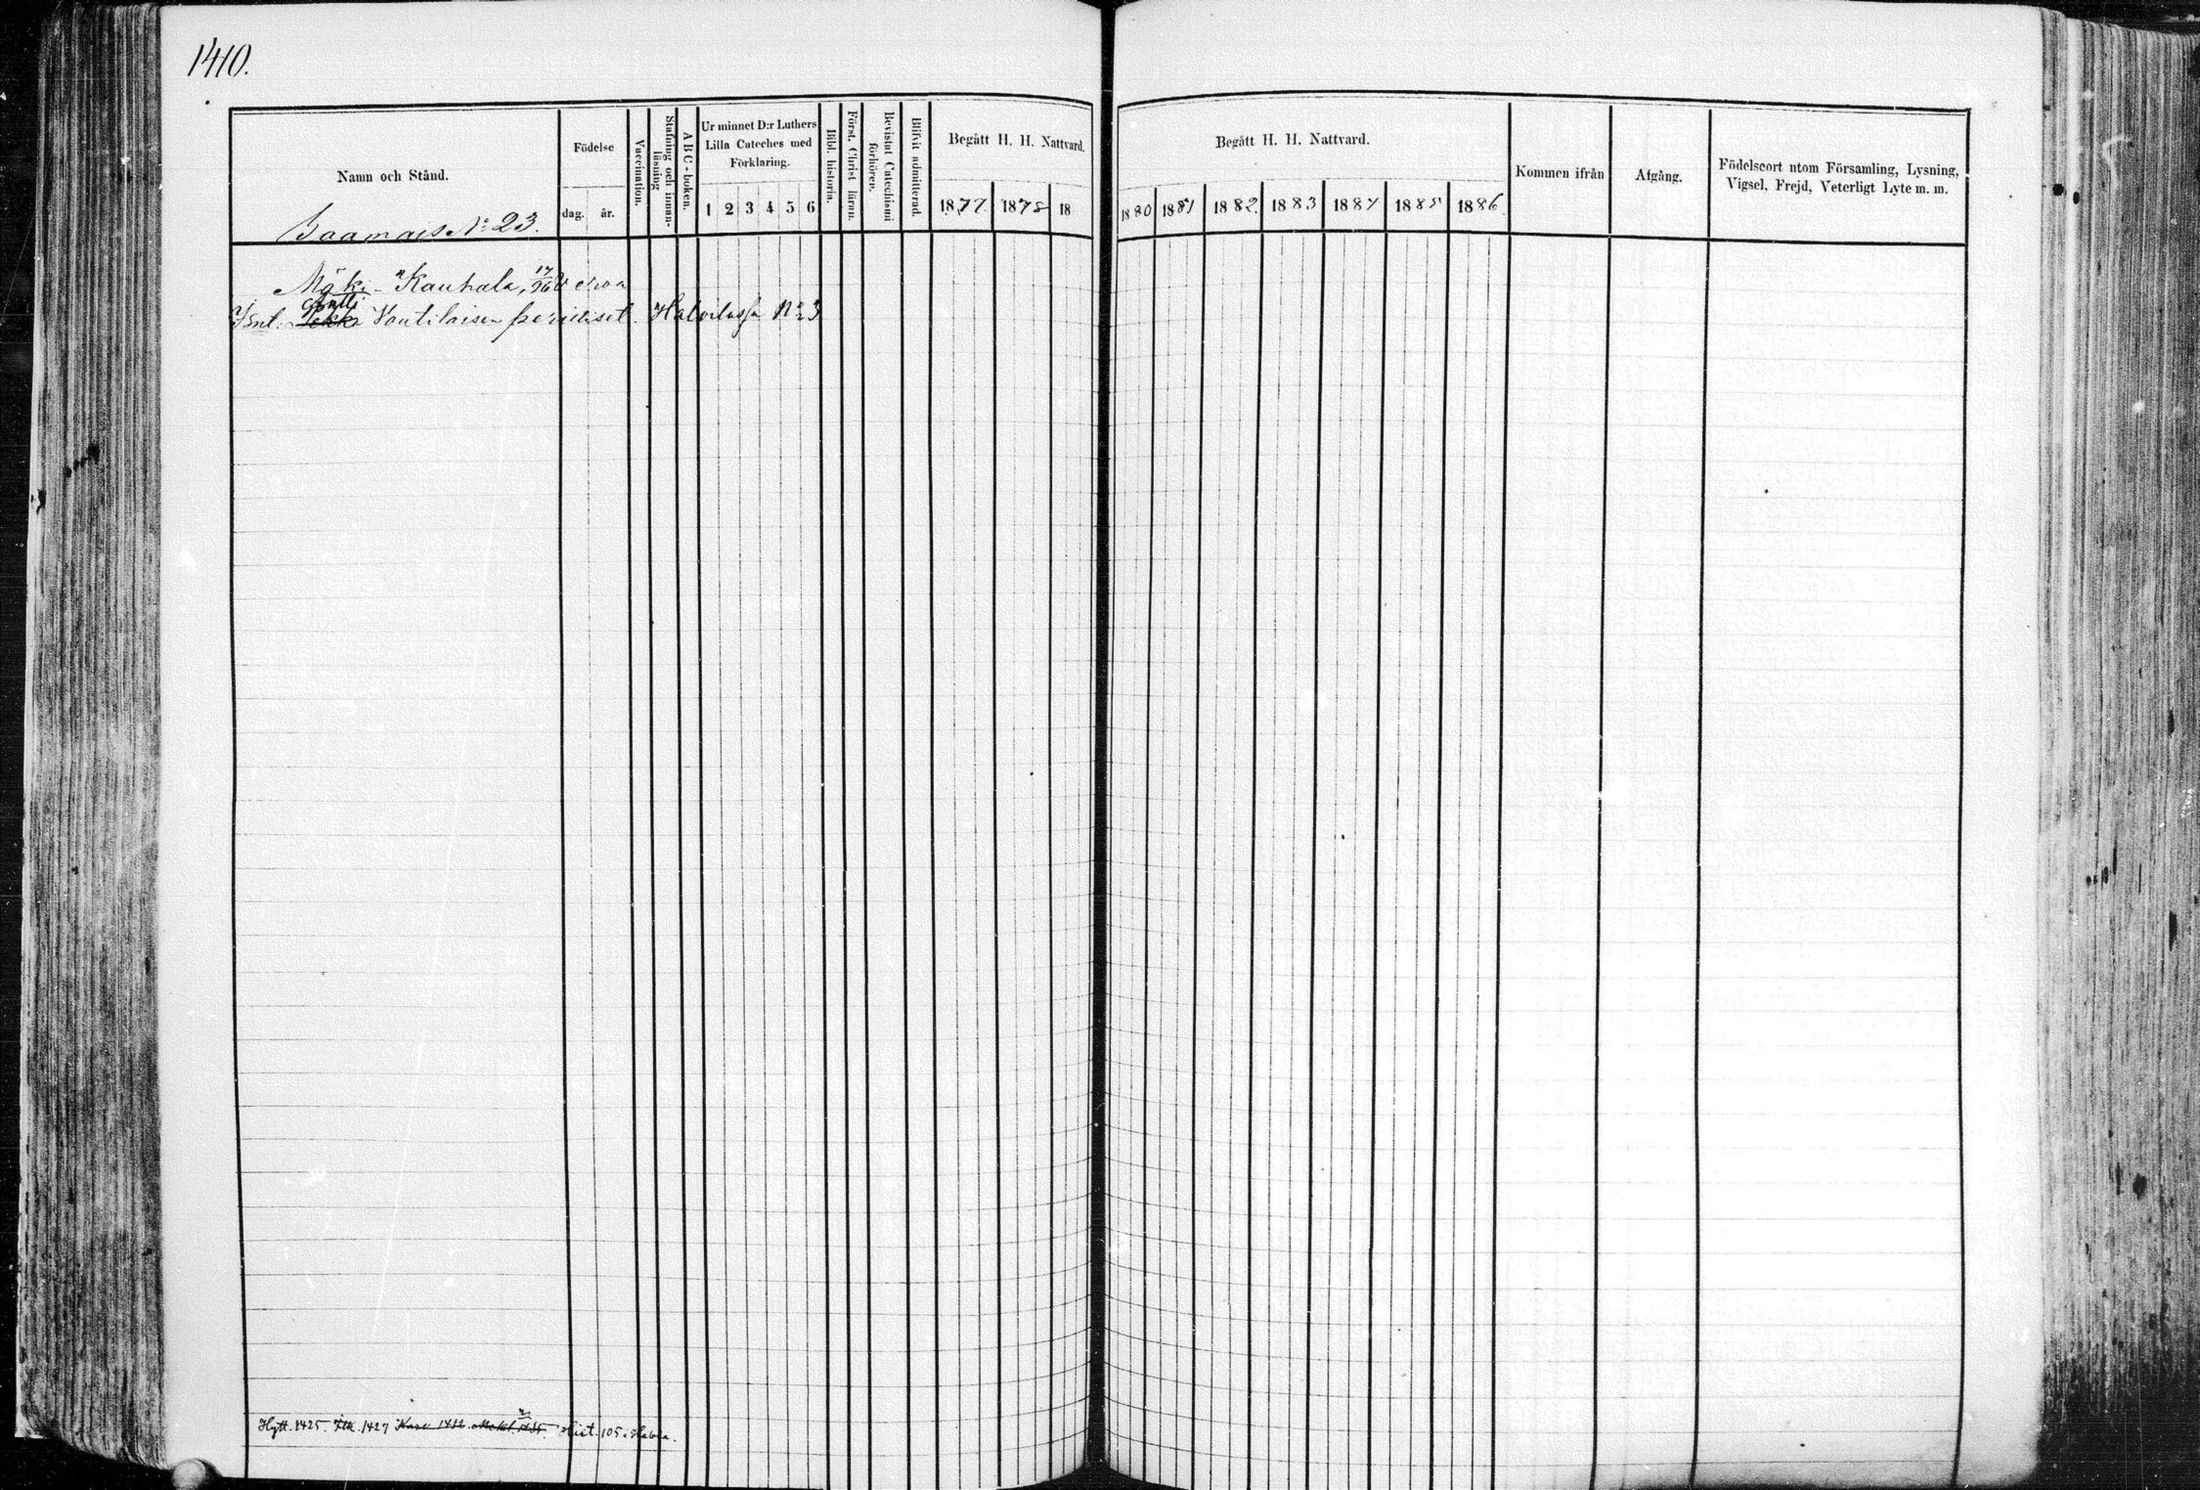 1410.
Namn och Stånd.
Födelse
dag. år.
Vaccination.
Stafning och innan-läsning
ABC-boken.
Ur minnet D:r Luthers Lilla Cateches med Förklaring.
1 2 3 4 5 6
Bibl. historia.
Först. Christ läran.
Bevistat Catechismi förhören.
Blifvit admitterad.
Begått H. H. Nattvard.
1877 1878 18
Begått H. H. Nattvard.
1880 1881 1882 1883 1884 1885 1886
Kommen ifrån
Afgång.
Födelseort utom Församling, Lysning, Vigsel, Frejd, Veterligt Lyte m. m.
Saamais № 23.
Mäki-Kauhala, 17/96
Antti
Isnt. Voutilaisen perilliset. № 3
Hytt. 1425. 1427 1432 Hist. 105